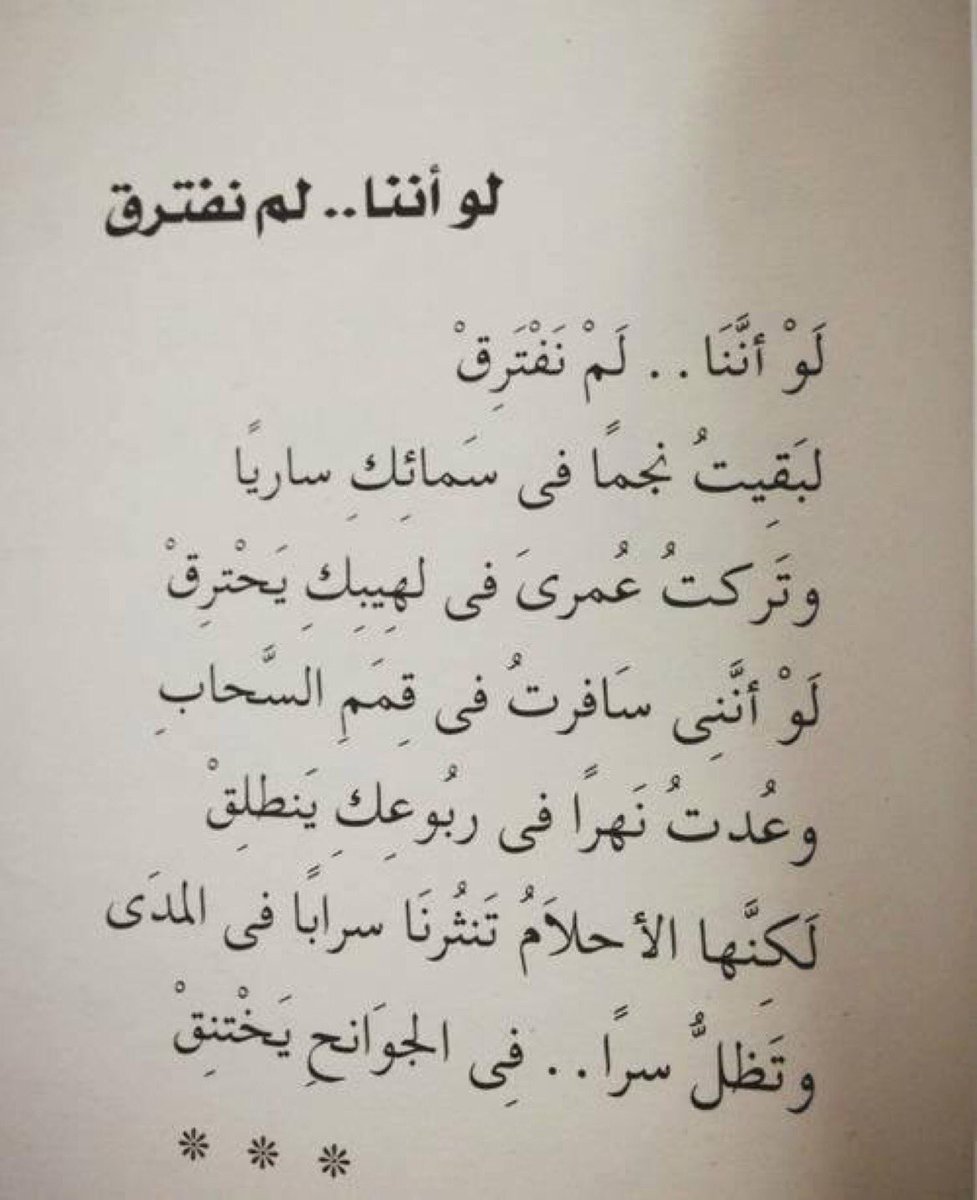 لو أننا.. لم نفترق
لَوْ أنَّنَا.. لَمْ نَفْتَرِقْ
لبَقِيتُ نجمًا فى سَمائِكِ ساريًا
وتَركتُ عُمرىَ فى لهِيبِكِ يَحْترِقْ
لَوْ أنَّنِى سَافرتُ فى قِمَمِ السَّحابِ
وعُدتُ نَهرًا فى ربُوعِكِ يَنطلِقْ
لَكِنَّها الأحلاَمُ تَنثُرنَا سرابًا فى المدَى
وتَظلُّ سرًا.. فِى الجوَانحِ يَخْتنِقْ
* * *